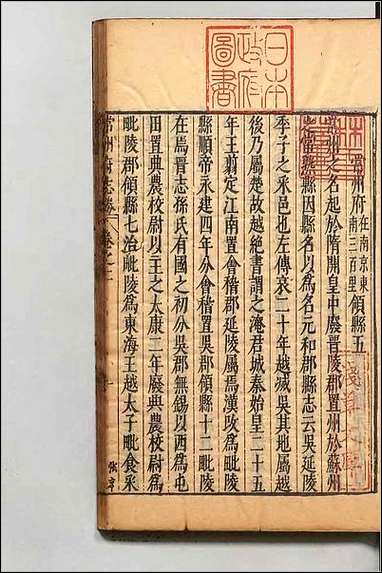 日本
政府
圖書
常州府在南京東南三百里領縣五
常州之名起於隋開皇中廢晉陵郡置州於蘇州
之常熟縣因縣名以爲名元和郡縣志云吳延陵
季子之采邑也左傳哀二十年越滅吳其地屬越
後乃屬楚故越絕書謂之淹君城秦始皇二十五
年王翦定江南置會稽郡延陵屬焉漢改爲毗陵
縣順帝永建四年分會稽置吳郡領縣十二毗陵
在焉晉志孫氏有國之初分吳郡無錫以西爲屯
田置典農校尉以主之太康二年廢典農校尉爲
毗陵郡郡領縣七治毗陵爲東海王越太子毗食采
常州府志 卷之